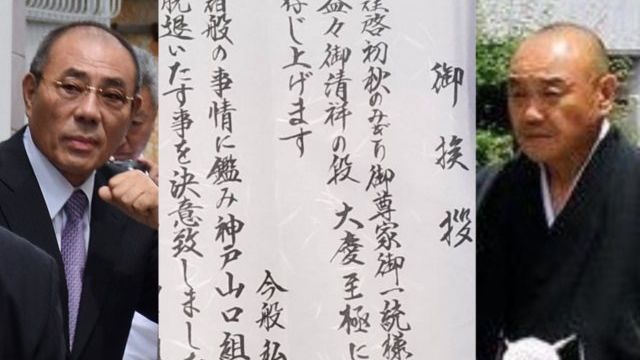 御挨拶
啓初秋のみぎり御尊家御一統様
益々御清祥の段 大慶至極に
存じ上げます
今般 私
諸般の事情に鑑み神戸山口組
脱退いたす事を決意致しました